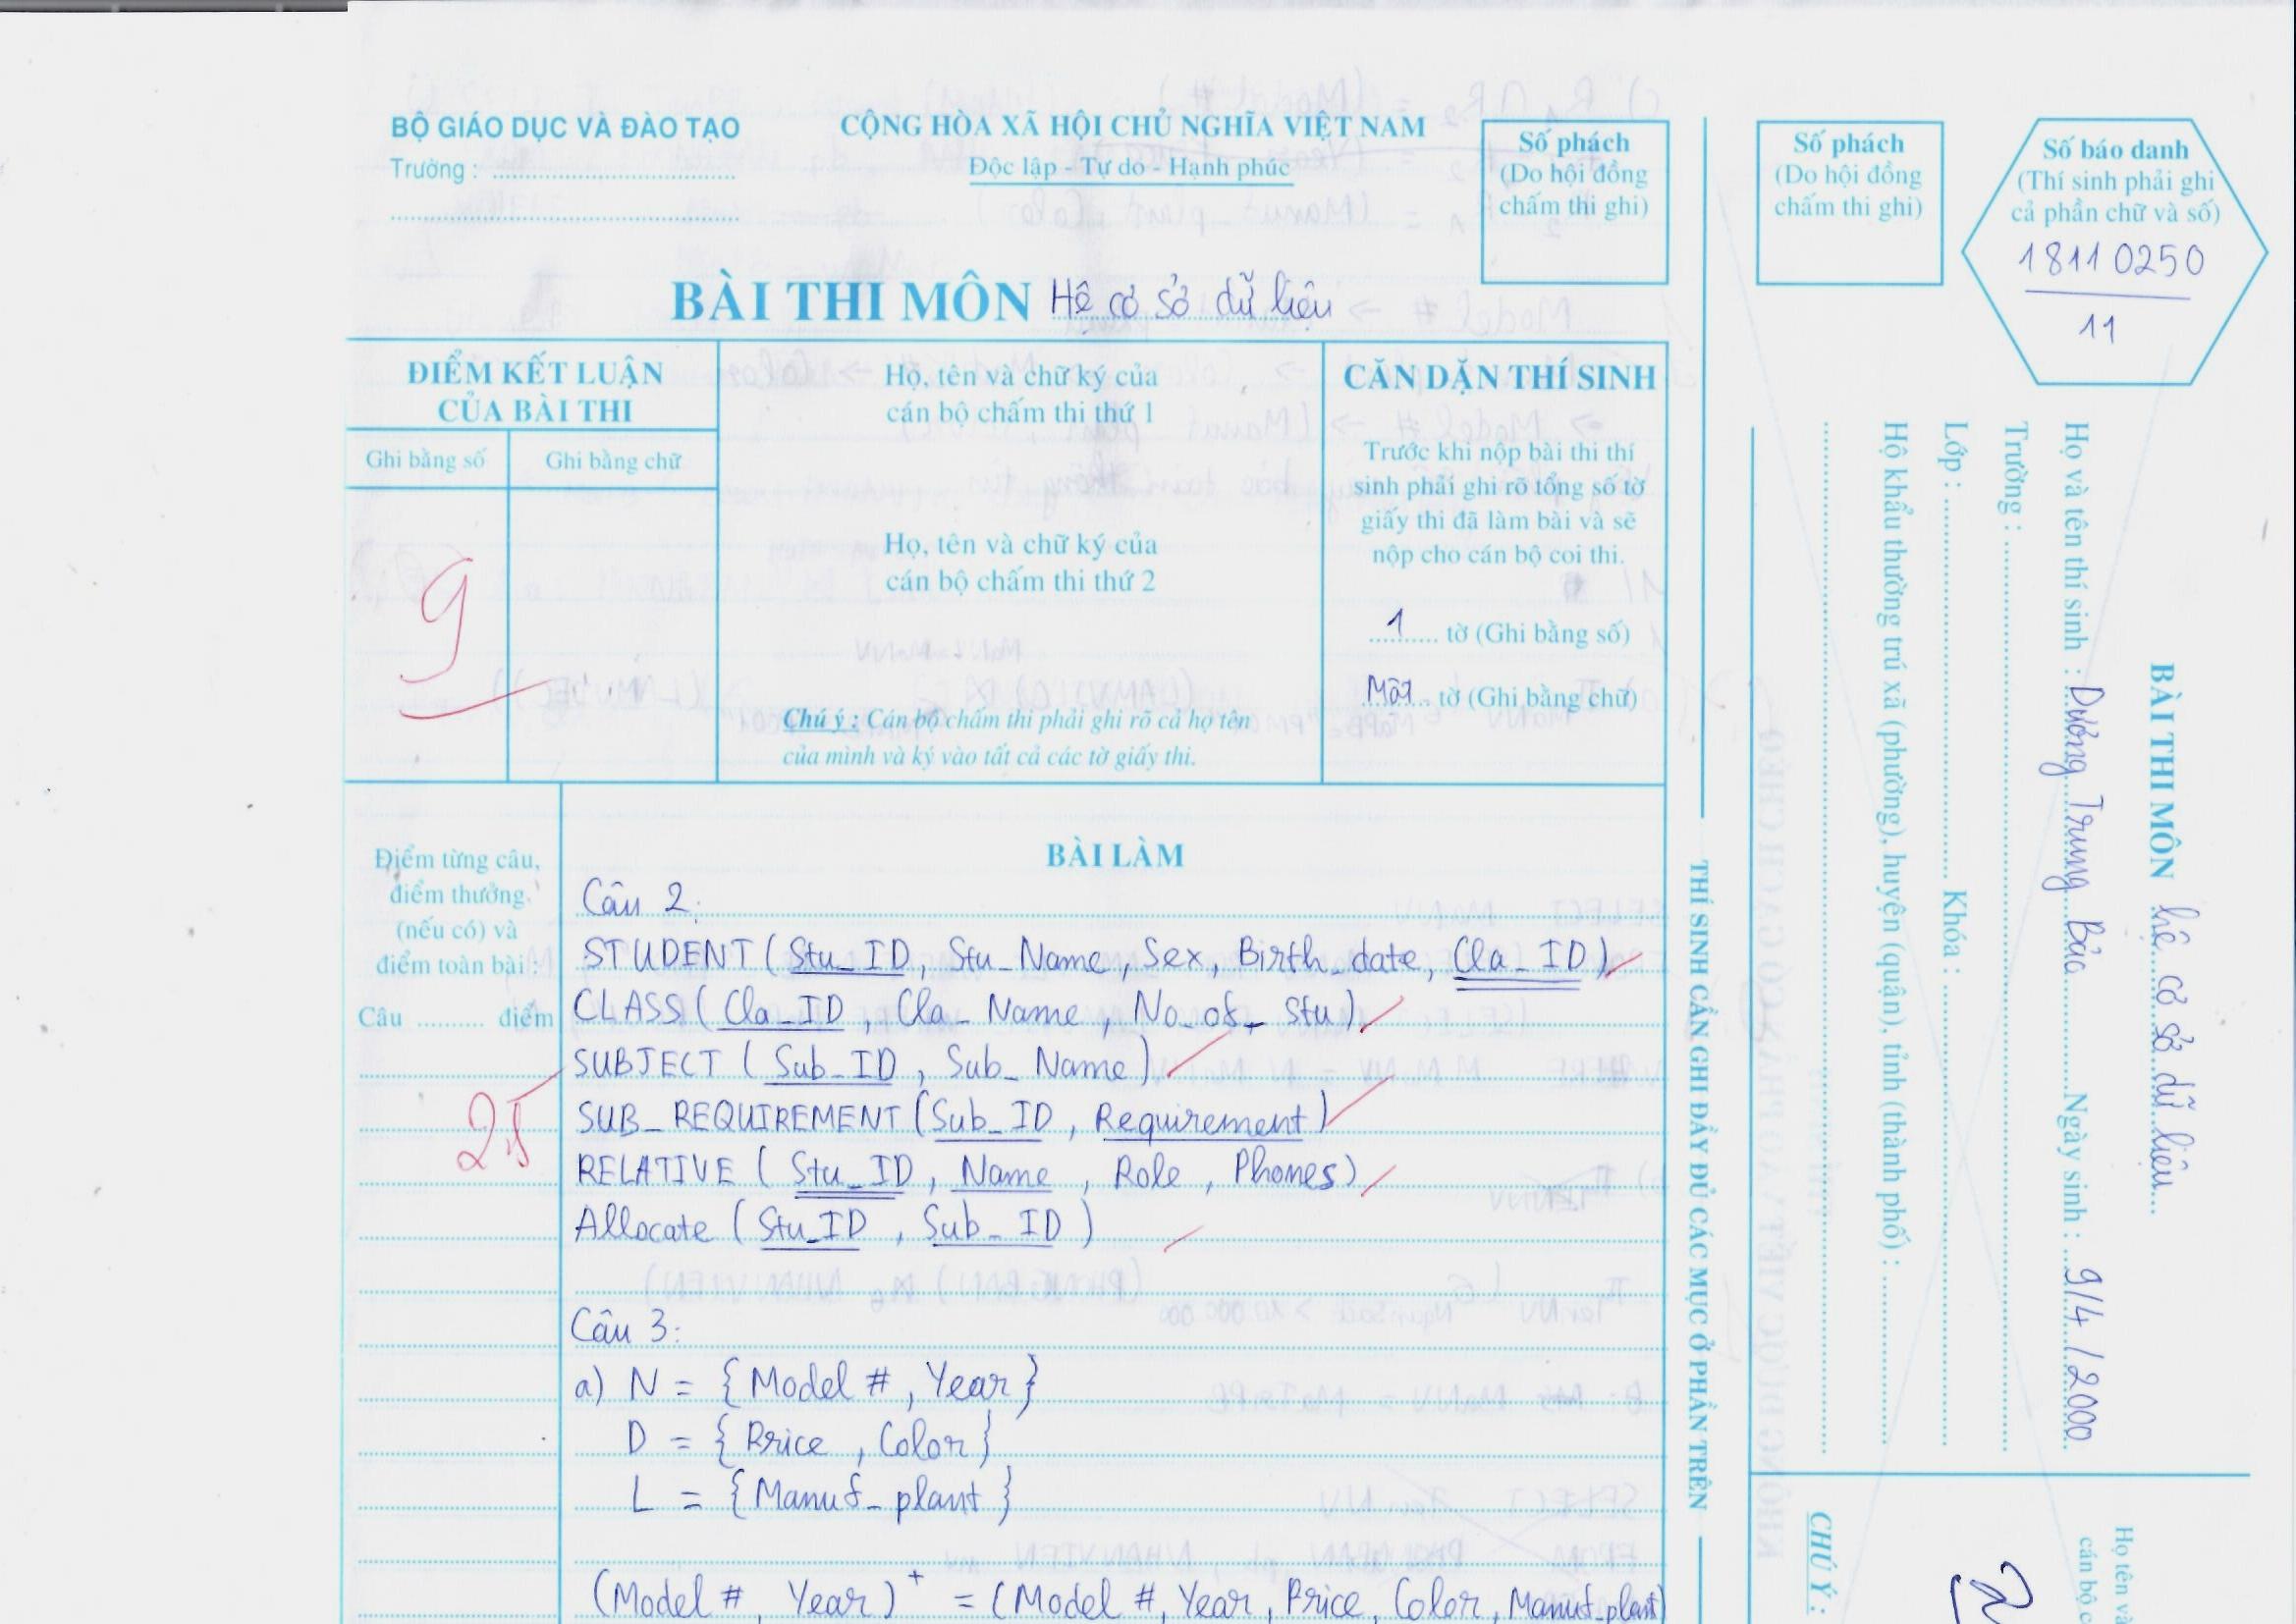 BỘ GIÁO DỤC VÀ ĐÀO TẠO
Trường :
CỘNG HÒA XÃ HỘI CHỦ NGHĨA VIỆT NAM
Độc lập - Tự do - Hạnh phúc
Số phách
(Do hội đồng
chấm thi ghi)
Số phách
(Do hội đồng
chấm thi ghi)
Số báo danh
(Thí sinh phải ghi
cả phần chữ và số)
18110250
11
BÀI THI MÔN Hệ cơ sở dữ liệu
ĐIỂM KẾT LUẬN
CỦA BÀI THI
Ghi bằng số
Ghi bằng chữ
9
Họ, tên và chữ ký của
cán bộ chấm thi thứ 1
Họ, tên và chữ ký của
cán bộ chấm thi thứ 2
Chú ý : Cán bộ chấm thi phải ghi rõ cả họ tên
của mình và ký vào tất cả các tờ giấy thi.
CĂN DẶN THÍ SINH
Trước khi nộp bài thi thí
sinh phải ghi rõ tổng số tờ
giấy thi đã làm bài và sẽ
nộp cho cán bộ coi thi.
1 tờ (Ghi bằng số)
Một tờ (Ghi bằng chữ)
Điểm từng câu,
điểm thưởng
(nếu có) và
điểm toàn bài :
Câu .......... điểm
2,5
BÀI LÀM
Câu 2:
STUDENT (Stu_ID, Stu_Name, Sex, Birth_date, Cla_ID)
CLASS (Cla_ID, Cla_Name, No_of_Stu)
SUBJECT (Sub_ID, Sub_Name)
SUB_REQUIREMENT (Sub_ID, Requirement)
RELATIVE (Stu_ID, Name, Role, Phones)
Allocate (Stu_ID, Sub_ID)
Câu 3:
a) N = {Model #, Year}
D = {Price, Color}
L = {Manuf_plant}
(Model #, Year)+ = (Model #, Year, Price, Color, Manuf_plant)
THÍ SINH CẦN GHI ĐẦY ĐỦ CÁC MỤC Ở PHẦN TRÊN
BÀI THI MÔN hệ cơ sở dữ liệu
Họ và tên thí sinh : Dương Trung Bảo Ngày sinh : 9/4/2000
Trường :
Lớp : Khóa :
Hộ khẩu thường trú xã (phường), huyện (quận), tỉnh (thành phố) :
CHÚ Ý :
Họ tên và
cán bộ c